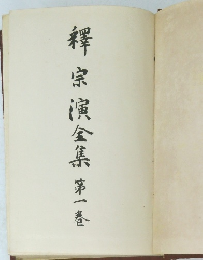 釋宗演全集 第一卷